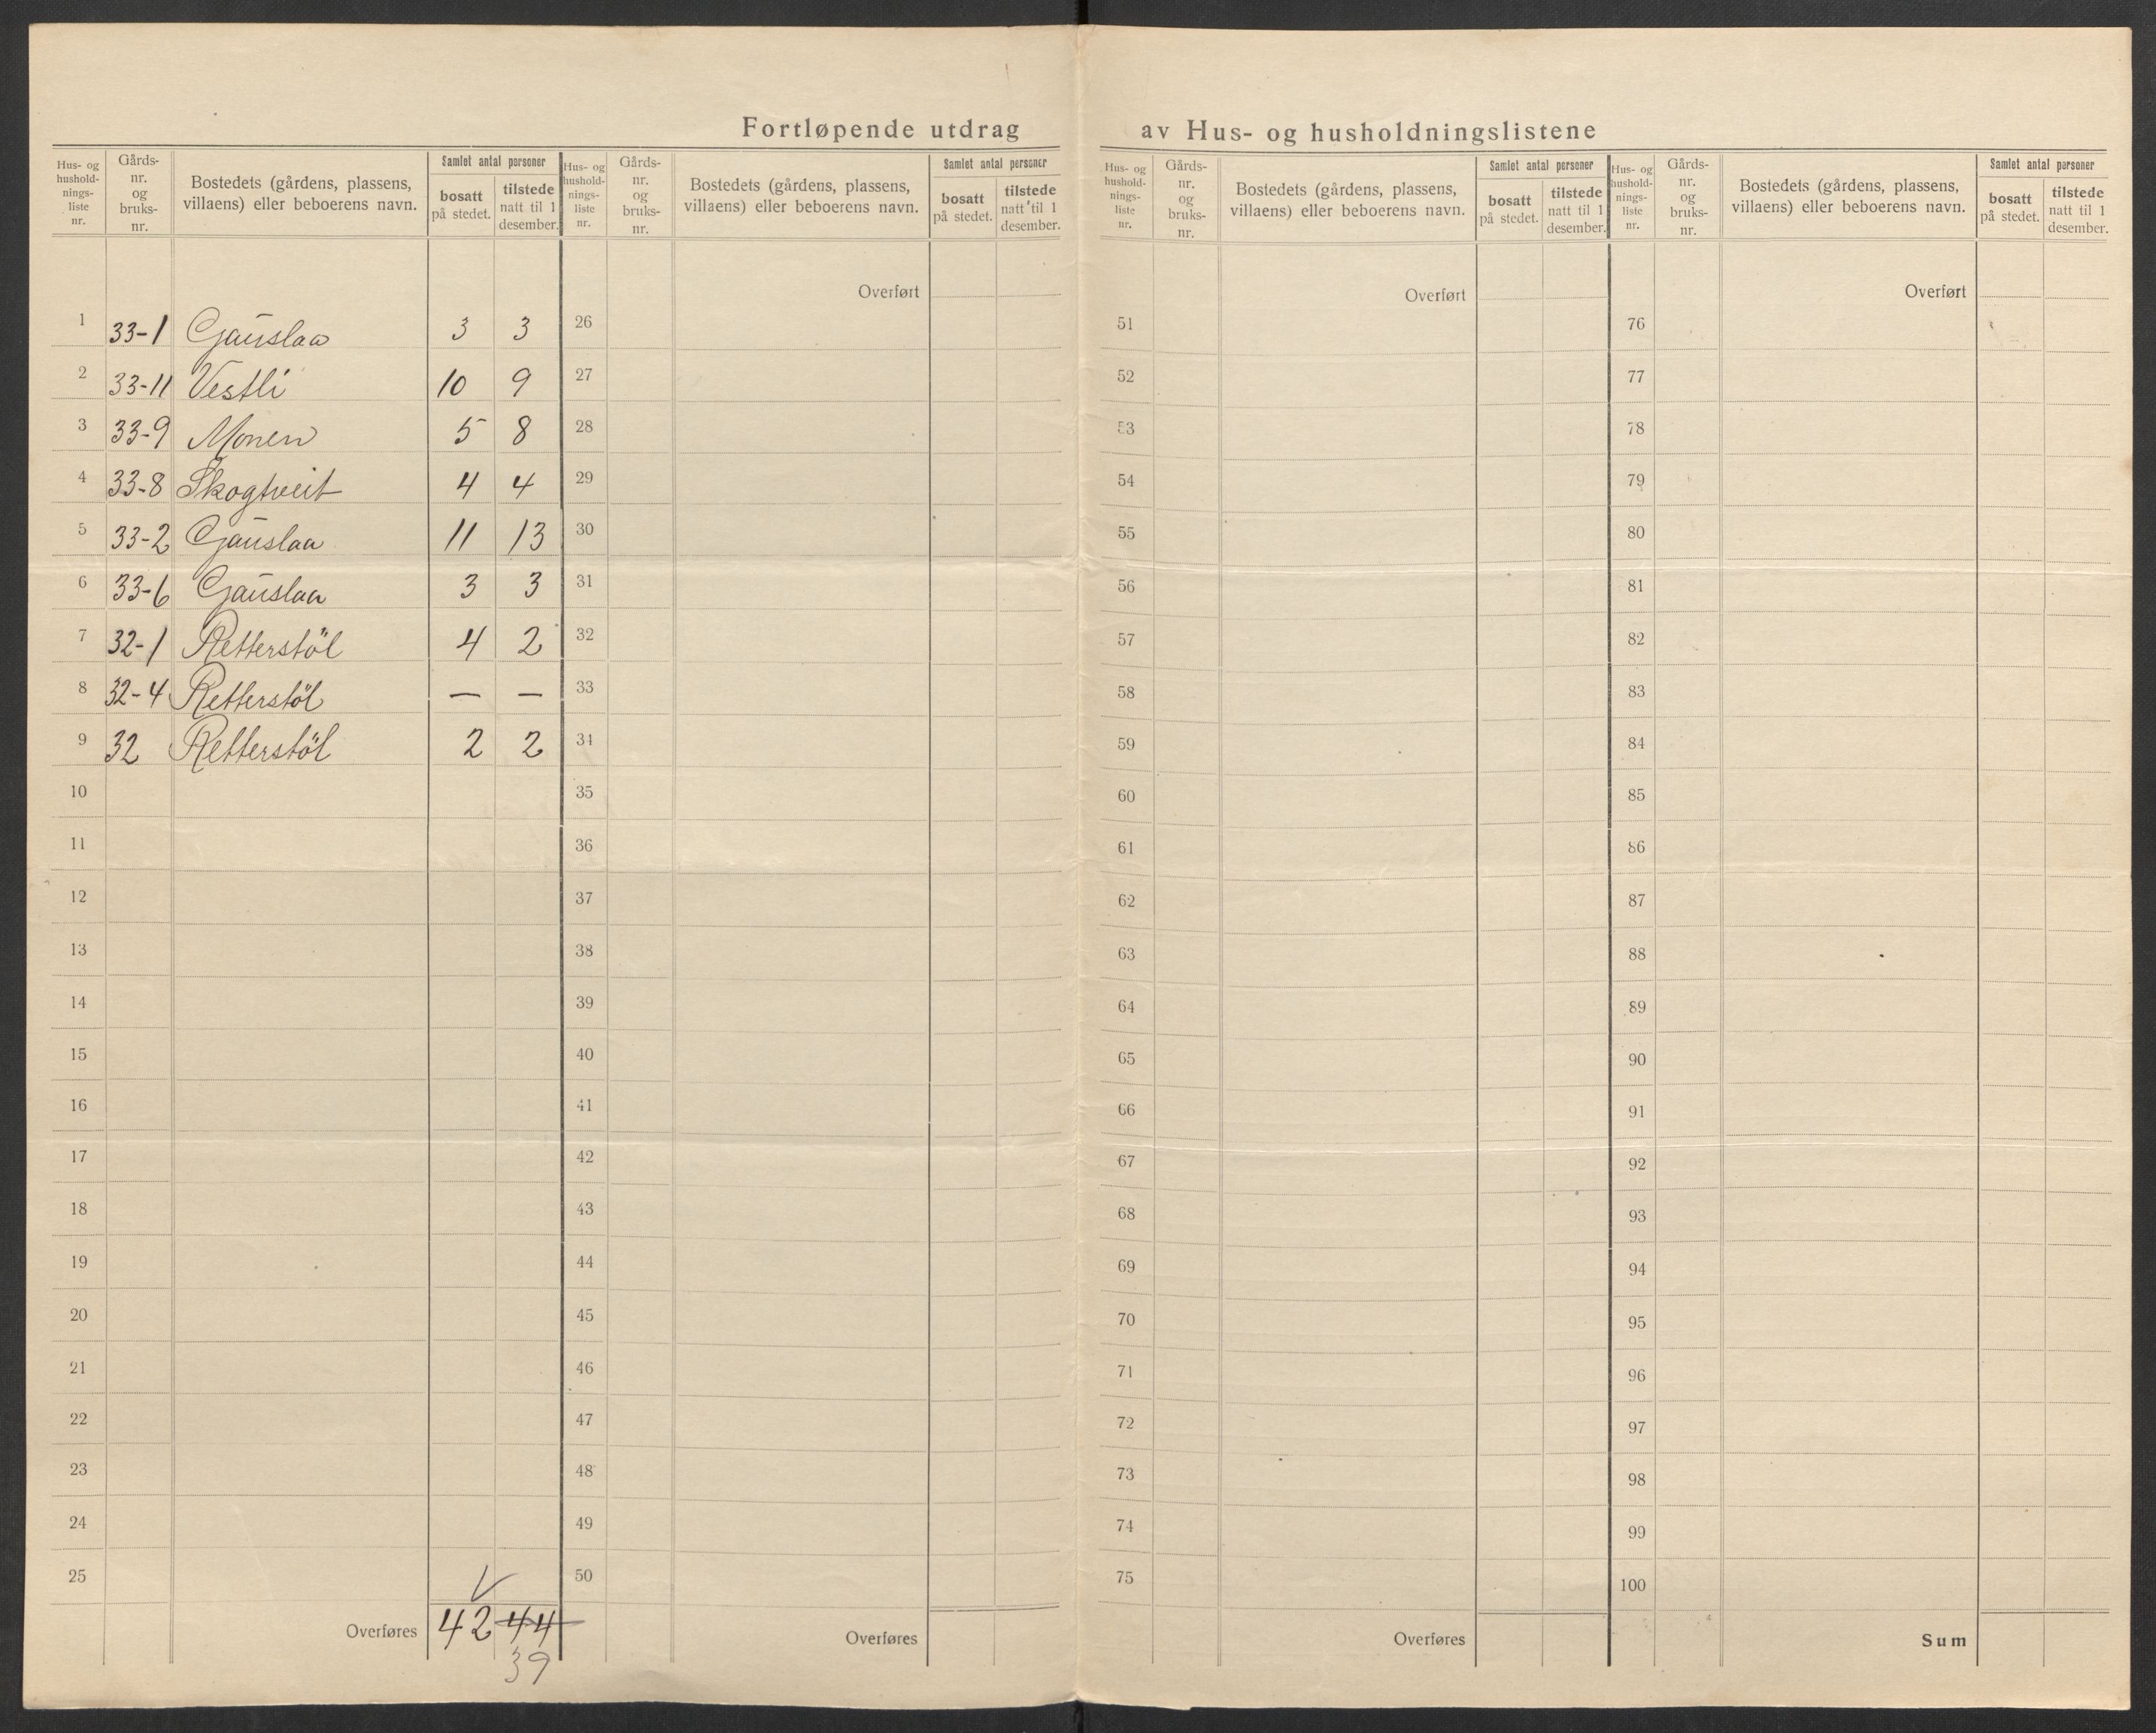 Fortløpende utdrag av Hus- og husholdningslistene
Hus- og hushold-nings-liste nr. Gårds-nr. og bruks-nr. Bostedets (gårdens, plassens, villaens) eller beboerens navn. Samlet antal personer bosatt på stedet. tilstede natt til 1 desember.
Hus- og hushold-nings-liste nr. Gårds-nr. og bruks-nr. Bostedets (gårdens, plassens, villaens) eller beboerens navn. Samlet antal personer bosatt på stedet. tilstede natt til 1 desember.
Hus- og hushold-nings-liste nr. Gårds-nr. og bruks-nr. Bostedets (gårdens, plassens, villaens) eller beboerens navn. Samlet antal personer bosatt på stedet. tilstede natt til 1 desember.
Hus- og hushold-nings-liste nr. Gårds-nr. og bruks-nr. Bostedets (gårdens, plassens, villaens) eller beboerens navn. Samlet antal personer bosatt på stedet. tilstede natt til 1 desember.
Overført Overført Overført
1 33-1 Gauslaa 3 3 26 51 76
2 33-11 Vestli 10 9 27 52 77
3 33-9 Monen 5 8 28 53 78
4 33-8 Skogtveit 4 4 29 54 79
5 33-2 Gauslaa 11 13 30 55 80
6 33-6 Gauslaa 3 3 31 56 81
7 32-1 Retterstöl 4 2 32 57 82
8 32-4 Retterstöl — — 33 58 83
9 32 Retterstöl 2 2 34 59 84
10 35 60 85
11 36 61 86
12 37 62 87
13 38 63 88
14 39 64 89
15 40 65 90
16 41 66 91
17 42 67 92
18 43 68 93
19 44 69 94
20 45 70 95
21 46 71 96
22 47 72 97
23 48 73 98
24 49 74 99
25 50 75 100
Overføres 42 44 Overføres Overføres Sum
39